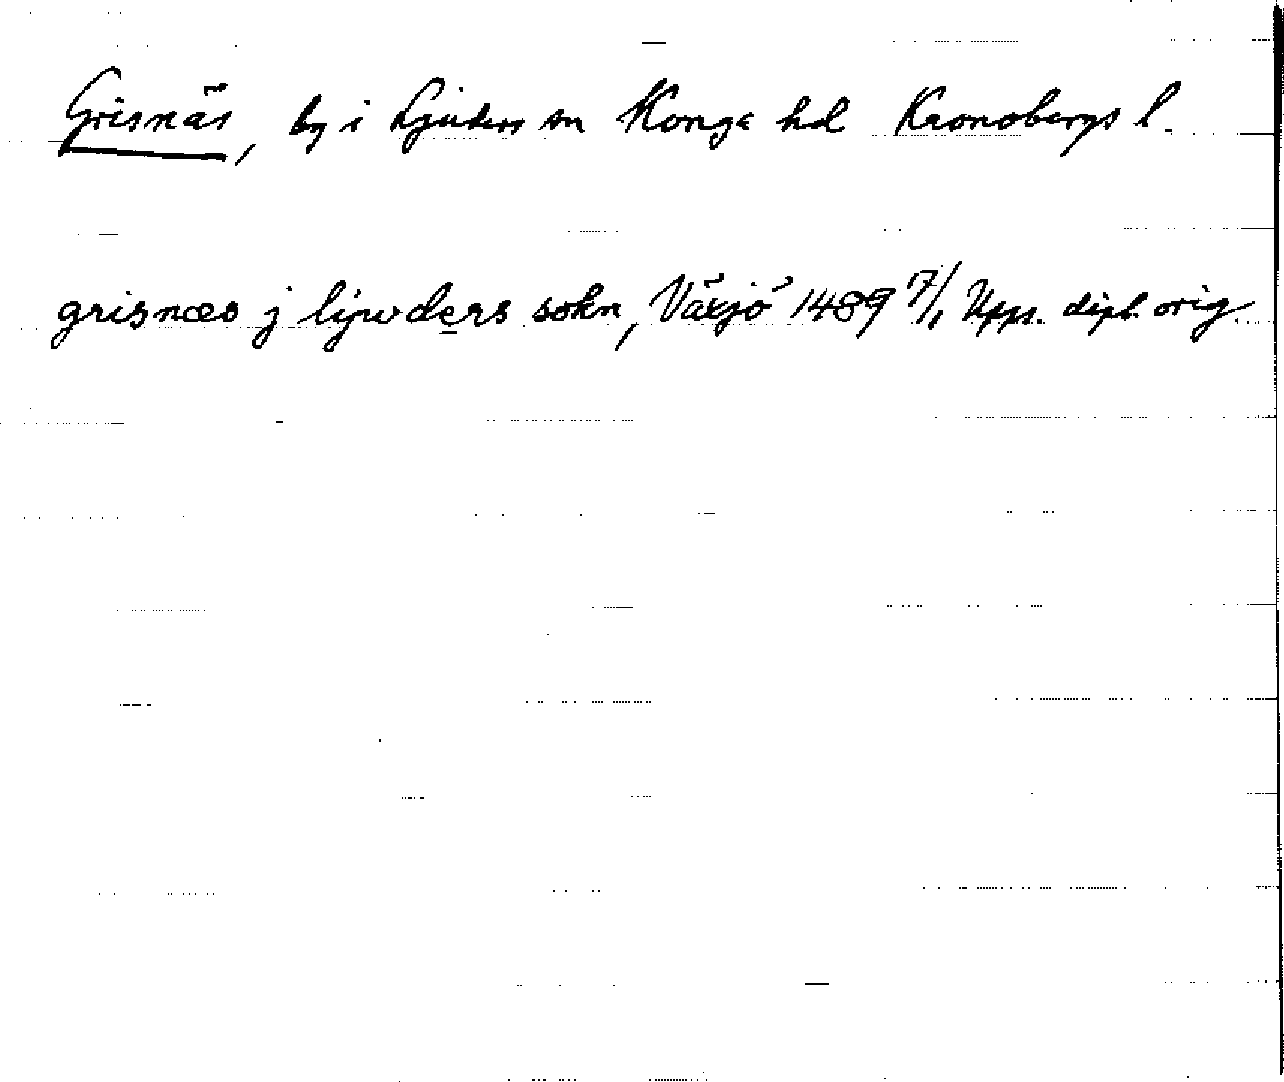 Grisnäs, by i Ljuders sn Konga hd Kronobergs l.
grisnæs j lijwders sokn, Växjö 1489 7/1 Upps. dipl. orig